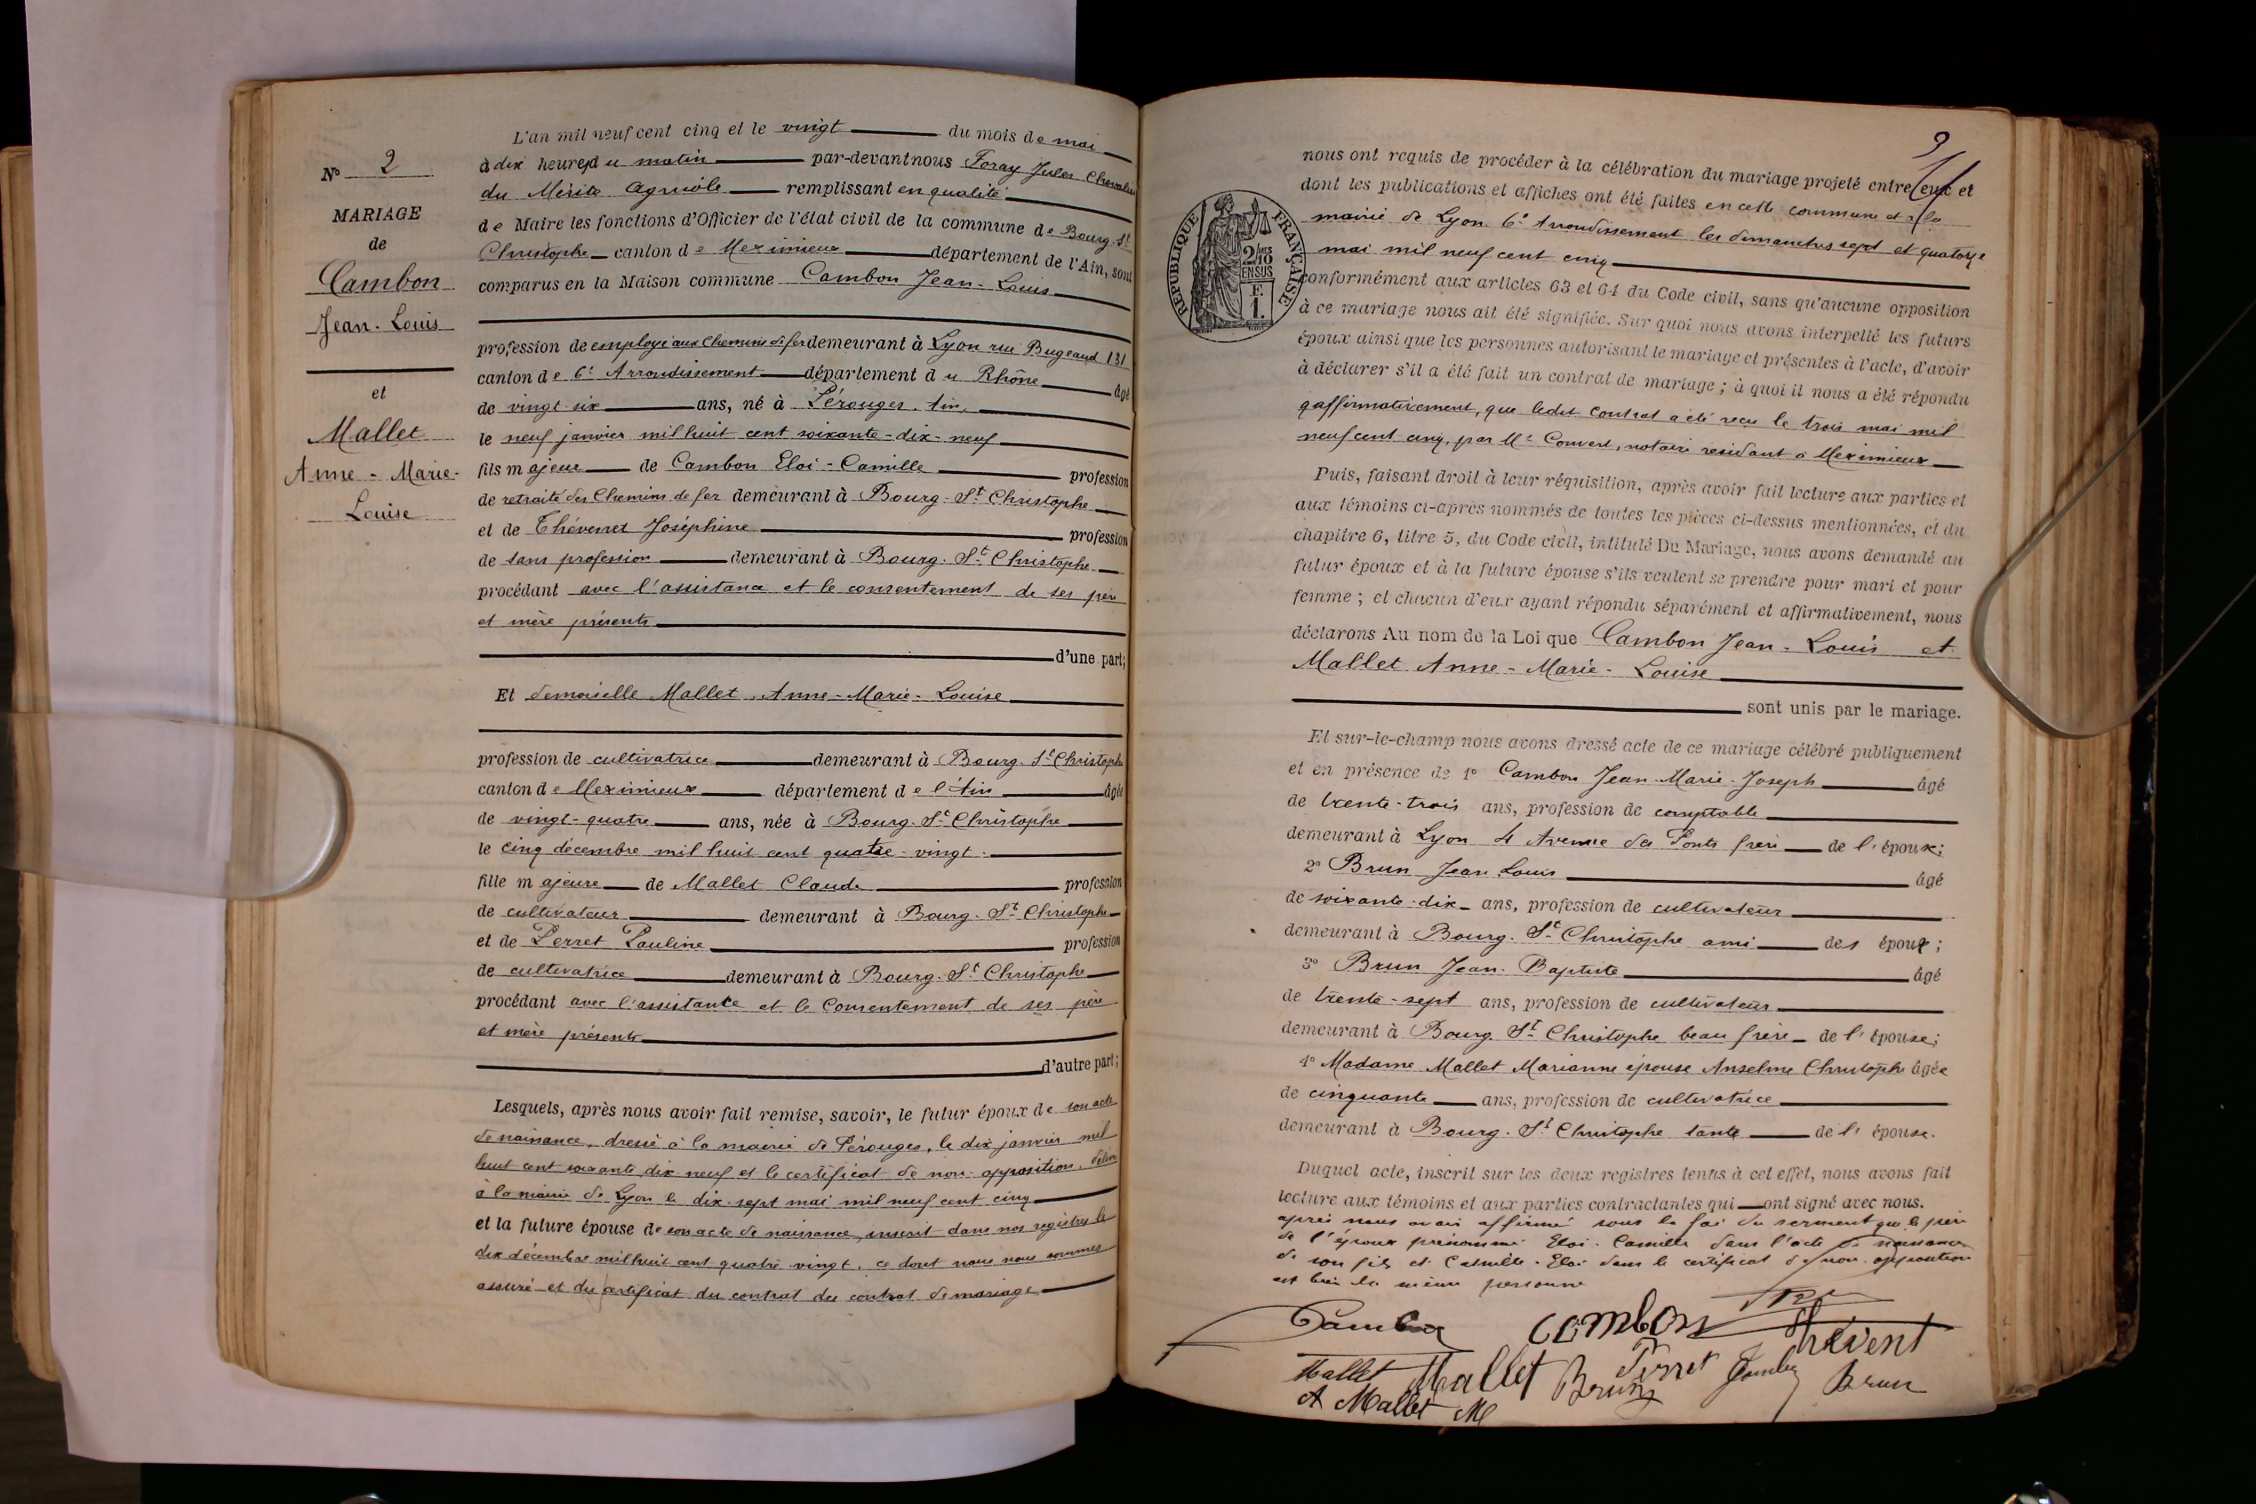 N° 2
MARIAGE
de
Cambon
Jean-Louis
et
Mallet
Anne-Marie-
Louise
L'an mil neuf cent cinq et le vingt du mois de mai
à dix heures du matin par-devant nous Foray Jules Chevalier
du Mérite Agricole remplissant en qualité
de Maire les fonctions d'Officier de l'état civil de la commune de Bourg-St
Christophe canton de Meximieux département de l'Ain, sont
comparus en la Maison commune Cambon Jean-Louis
profession de employé aux Chemins de fer demeurant à Lyon rue Bugeaud 131
canton de 6e Arrondissement département du Rhône âgé
de vingt-six ans, né à Pérouges, Ain,
le neuf janvier mil huit cent soixante-dix-neuf
fils majeur de Cambon Eloi-Camille profession
de retraité des Chemins de fer demeurant à Bourg-St Christophe
et de Thévenet Joséphine profession
de sans profession demeurant à Bourg-St Christophe
procédant avec l'assistance et le consentement de ses père
et mère présents
d'une part;
Et demoiselle Mallet Anne-Marie-Louise
profession de cultivatrice demeurant à Bourg-St Christophe
canton de Meximieux département de l'Ain âgée
de vingt-quatre ans, née à Bourg-St Christophe
le cinq décembre mil huit cent quatre-vingt.
fille majeure de Mallet Claude profession
de cultivateur demeurant à Bourg-St Christophe
et de Perret Pauline profession
de cultivatrice demeurant à Bourg-St Christophe
procédant avec l'assistance et le consentement de ses père
et mère présents
d'autre part;
Lesquels, après nous avoir fait remise, savoir, le futur époux de son acte
de naissance, dressé à la mairie de Pérouges, le dix janvier mil
huit cent soixante dix neuf et le certificat de non-opposition, délivré
à la mairie de Lyon le dix-sept mai mil neuf cent cinq
et la future épouse de son acte de naissance, inscrit dans nos registres le
dix décembre mil huit cent quatre vingt, ce dont nous nous sommes
assuré et du certificat du contrat du contrat de mariage
9
nous ont requis de procéder à la célébration du mariage projeté entre eux et
dont les publications et affiches ont été faites en cette commune et à la
mairie de Lyon 6e Arrondissement les dimanches sept et quatorze
mai mil neuf cent cinq
RÉPUBLIQUE FRANÇAISE
2/10 EN SUS
1 F.
conformément aux articles 63 et 64 du Code civil, sans qu'aucune opposition
à ce mariage nous ait été signifiée. Sur quoi nous avons interpellé les futurs
époux ainsi que les personnes autorisant le mariage et présentes à l'acte, d'avoir
à déclarer s'il a été fait un contrat de mariage; à quoi il nous a été répondu
qaffirmativement, que ledit contrat a été reçu le trois mai mil
neuf cent cinq, par Me Convert, notaire résidant à Meximieux
Puis, faisant droit à leur réquisition, après avoir fait lecture aux parties et
aux témoins ci-après nommés de toutes les pièces ci-dessus mentionnées, et du
chapitre 6, titre 5, du Code civil, intitulé Du Mariage, nous avons demandé au
futur époux et à la future épouse s'ils veulent se prendre pour mari et pour
femme; et chacun d'eux ayant répondu séparément et affirmativement, nous
déclarons Au nom de la Loi que Cambon Jean-Louis et
Mallet Anne-Marie-Louise
sont unis par le mariage.
Et sur-le-champ nous avons dressé acte de ce mariage célébré publiquement
et en présence de 1° Cambon Jean-Marie-Joseph âgé
de trente-trois ans, profession de comptable
demeurant à Lyon 4 Avenue des Ponts frère de l'époux;
2° Brun Jean Louis âgé
de soixante-dix ans, profession de cultivateur
demeurant à Bourg-St Christophe ami des époux;
3° Brun Jean-Baptiste âgé
de trente-sept ans, profession de cultivateur
demeurant à Bourg-St Christophe beau frère de l'épouse;
4° Madame Mallet Marianne épouse Anselme Christophe âgée
de cinquante ans, profession de cultivatrice
demeurant à Bourg-St Christophe tante de l'épouse.
Duquel acte, inscrit sur les deux registres tenus à cet effet, nous avons fait
lecture aux témoins et aux parties contractantes qui ont signé avec nous.
après nous avoir affirmé sous la foi du serment que le père
de l'époux prénommé Eloi-Camille dans l'acte de naissance
de son fils et Camille-Eloi dans le certificat de non-opposition
est bien la même personne
Cambon Cambon Thévent
Mallet Mallet Brun Perret Brun
A Mallet M